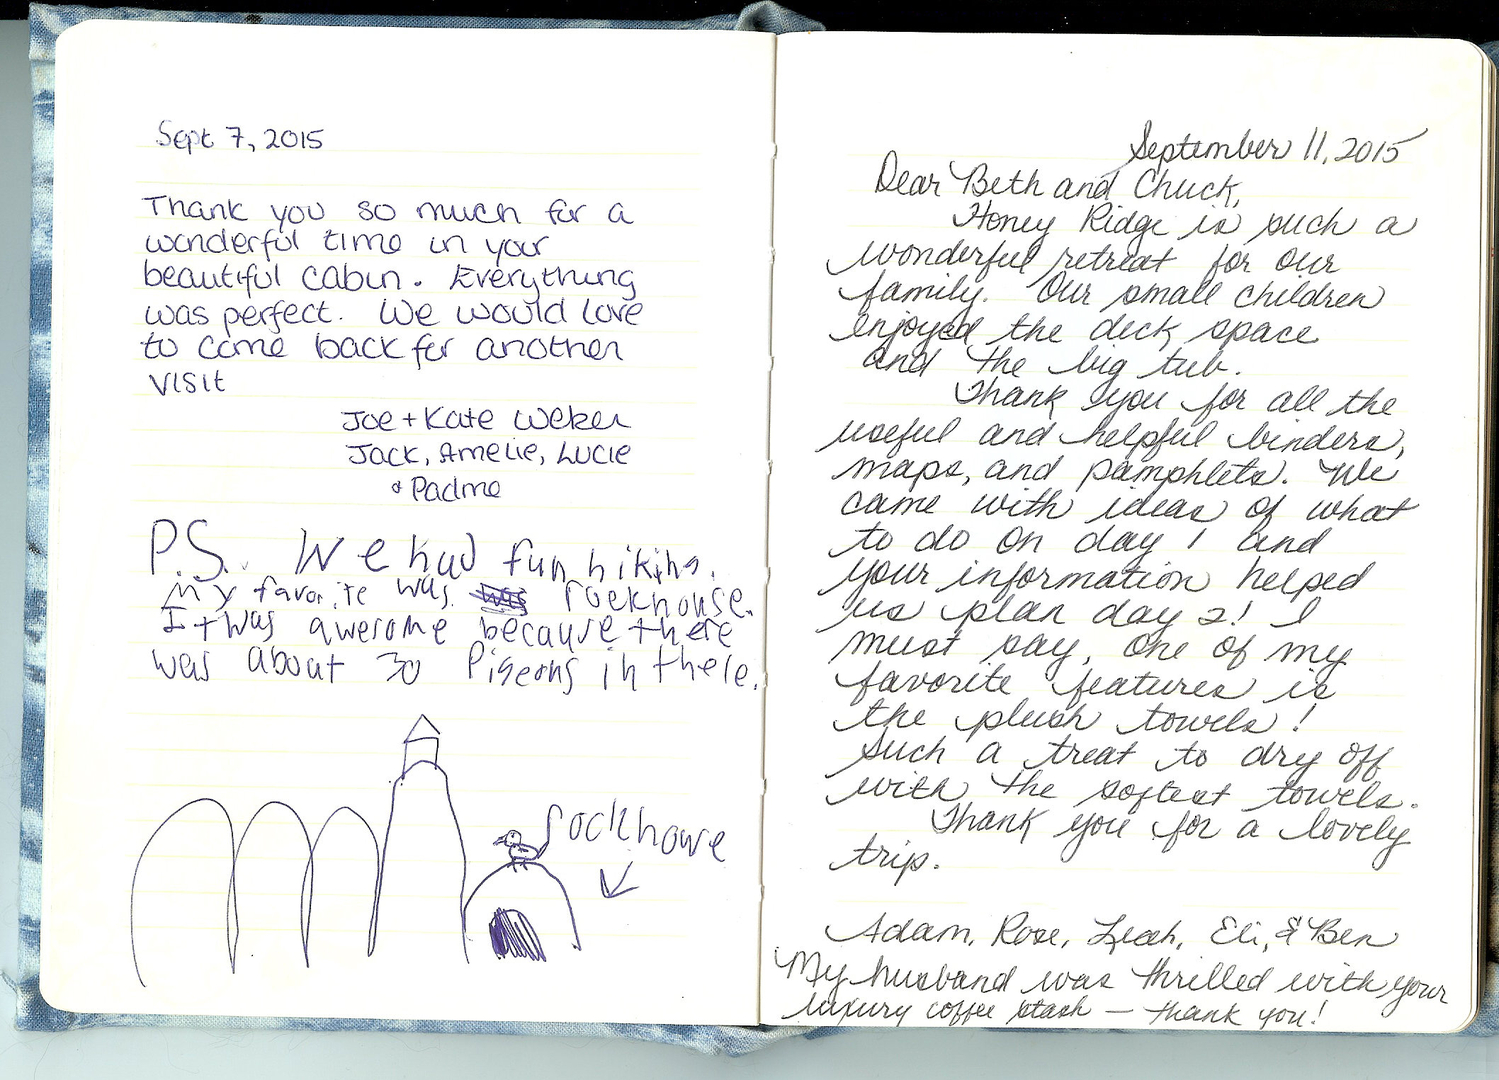 Sept 7, 2015
Thank you so much for a
wonderful time in your
beautiful cabin. Everything
was perfect. We would love
to come back for another
visit
Joe + Kate Weker
Jack, Amelie, Lucie
& Padme
P.S. We had fun hiking.
My favorite was was rockhouse.
It was awesome because there
was about 30 Pigeons in there.
rockhouse
September 11, 2015
Dear Beth and Chuck,
Honey Ridge is such a
wonderful retreat for our
family. Our small children
enjoyed the deck space
and the big tub.
Thank you for all the
useful and helpful binders,
maps, and pamphlets. We
came with ideas of what
to do on day 1 and
your information helped
us plan day 2! I
must say, one of my
favorite features is
the plush towels!
Such a treat to dry off
with the softest towels.
Thank you for a lovely
trip.
Adam, Rose, Leah, Eli, & Ben
My husband was thrilled with your
luxury coffee stash — thank you!